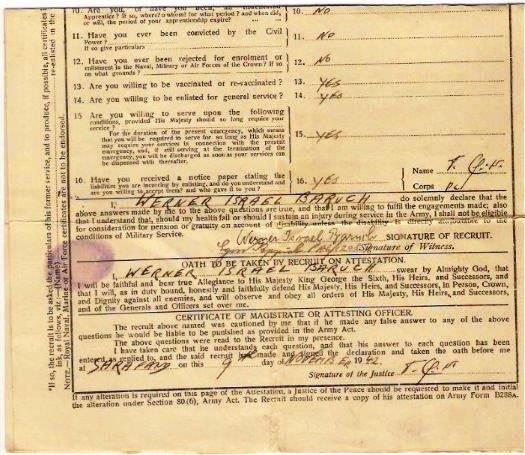 10. Are you, or have you been, an
Apprentice? If so, where? or what for what period? and when did,
or will, the period of your apprenticeship expire? 10. NO
11. Have you ever been convicted by the Civil
Power?
If so give particulars 11. NO
12. Have you ever been rejected for enrolment or
enlistment in the Naval, Military or Air Forces of the Crown? If so
on what grounds? 12. NO
13. Are you willing to be vaccinated or re-vaccinated? 13. YES
14. Are you willing to be enlisted for general service? 14. YES
15. Are you willing to serve upon the following
conditions, provided His Majesty should so long require your
service?
For the duration of the present emergency, which means
that you will be required to serve for so long as His Majesty
may require your services in connection with the present
emergency, and, if still serving at the termination of the
emergency, you will be discharged as soon as your services can
be dispensed therefter. 15. YES
16. Have you received a notice paper stating the
liabilities you are incurring by enlisting, and do you understand and
are you willing to accept them? and who gave it to you? 16. YES
Name
Corps
I, WERNER ISRAEL BARUCH do solemnly declare that the
above answers made by me to the above questions are true, and that I am willing to fulfil the engagements made; also
that I understand that, should my health fail or should I sustain an injury during service in the Army, I shall not be eligible
for consideration for pension or gratuity on account of disability unless the disability is directly attributable to the
conditions of Military Service.
Werner Israel Baruch SIGNATURE OF RECRUIT.
Signature of Witness.
OATH TO BE TAKEN BY RECRUIT ON ATTESTATION.
I, WERNER ISRAEL BARUCH swear by Almighty God, that
I will be faithful and bear true Allegiance to His Majesty King George the Sixth, His Heirs, and Successors, and
that I will, as in duty bound, honestly and faithfully defend His Majesty, His Heirs, and Successors, in Person, Crown,
and Dignity against all enemies, and will observe and obey all orders of His Majesty, His Heirs, and Successors,
and of the Generals and Officers set over me.
CERTIFICATE OF MAGISTRATE OR ATTESTING OFFICER.
The recruit above named was cautioned by me that if he made any false answer to any of the above
questions he would be liable to be punished as provided in the Army Act.
The above questions were read to the Recruit in my presence.
I have taken care that he understands each question, and that his answer to each question has been
entered as replied to, and the said recruit has made and signed the declaration and taken the oath before me
at SARAFAND on this 9th 19
Signature of the Justice
If any alteration is required on this page of the Attestation, a Justice of the Peace should be requested to make it and initial
the alteration under Section 80.(6), Army Act. The Recruit should receive a copy of his attestation on Army Form B238A.
*If so, the recruit is to be asked the particulars of his former service, and to produce, if possible, all certificates
as follows, viz.—(Name) re-enlisted in the
NOTE.—Royal Naval, Marine or Air Force certificates are not to be endorsed.